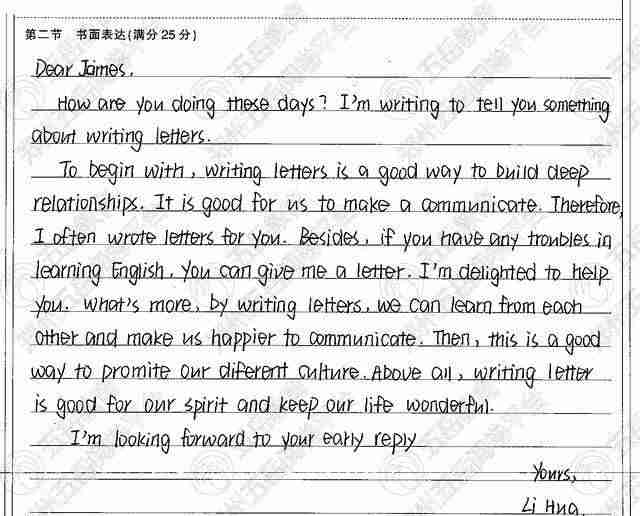 第二节 书面表达(满分25分)
Dear James.
How are you doing these days? I'm writing to tell you something
about writing letters.
To begin with, writing letters is a good way to build deep
relationships. It is good for us to make a communicate. Therefore,
I often wrote letters for you. Besides, if you have any troubles in
learning English, you can give me a letter. I'm delighted to help
you. What's more, by writing letters, we can learn from each
other and make us happier to communicate. Then, this is a good
way to promite our diferent culture. Above all, writing letter
is good for our spirit and keep our life wonderful.
I'm looking forward to your early reply
Yours,
Li Hua.